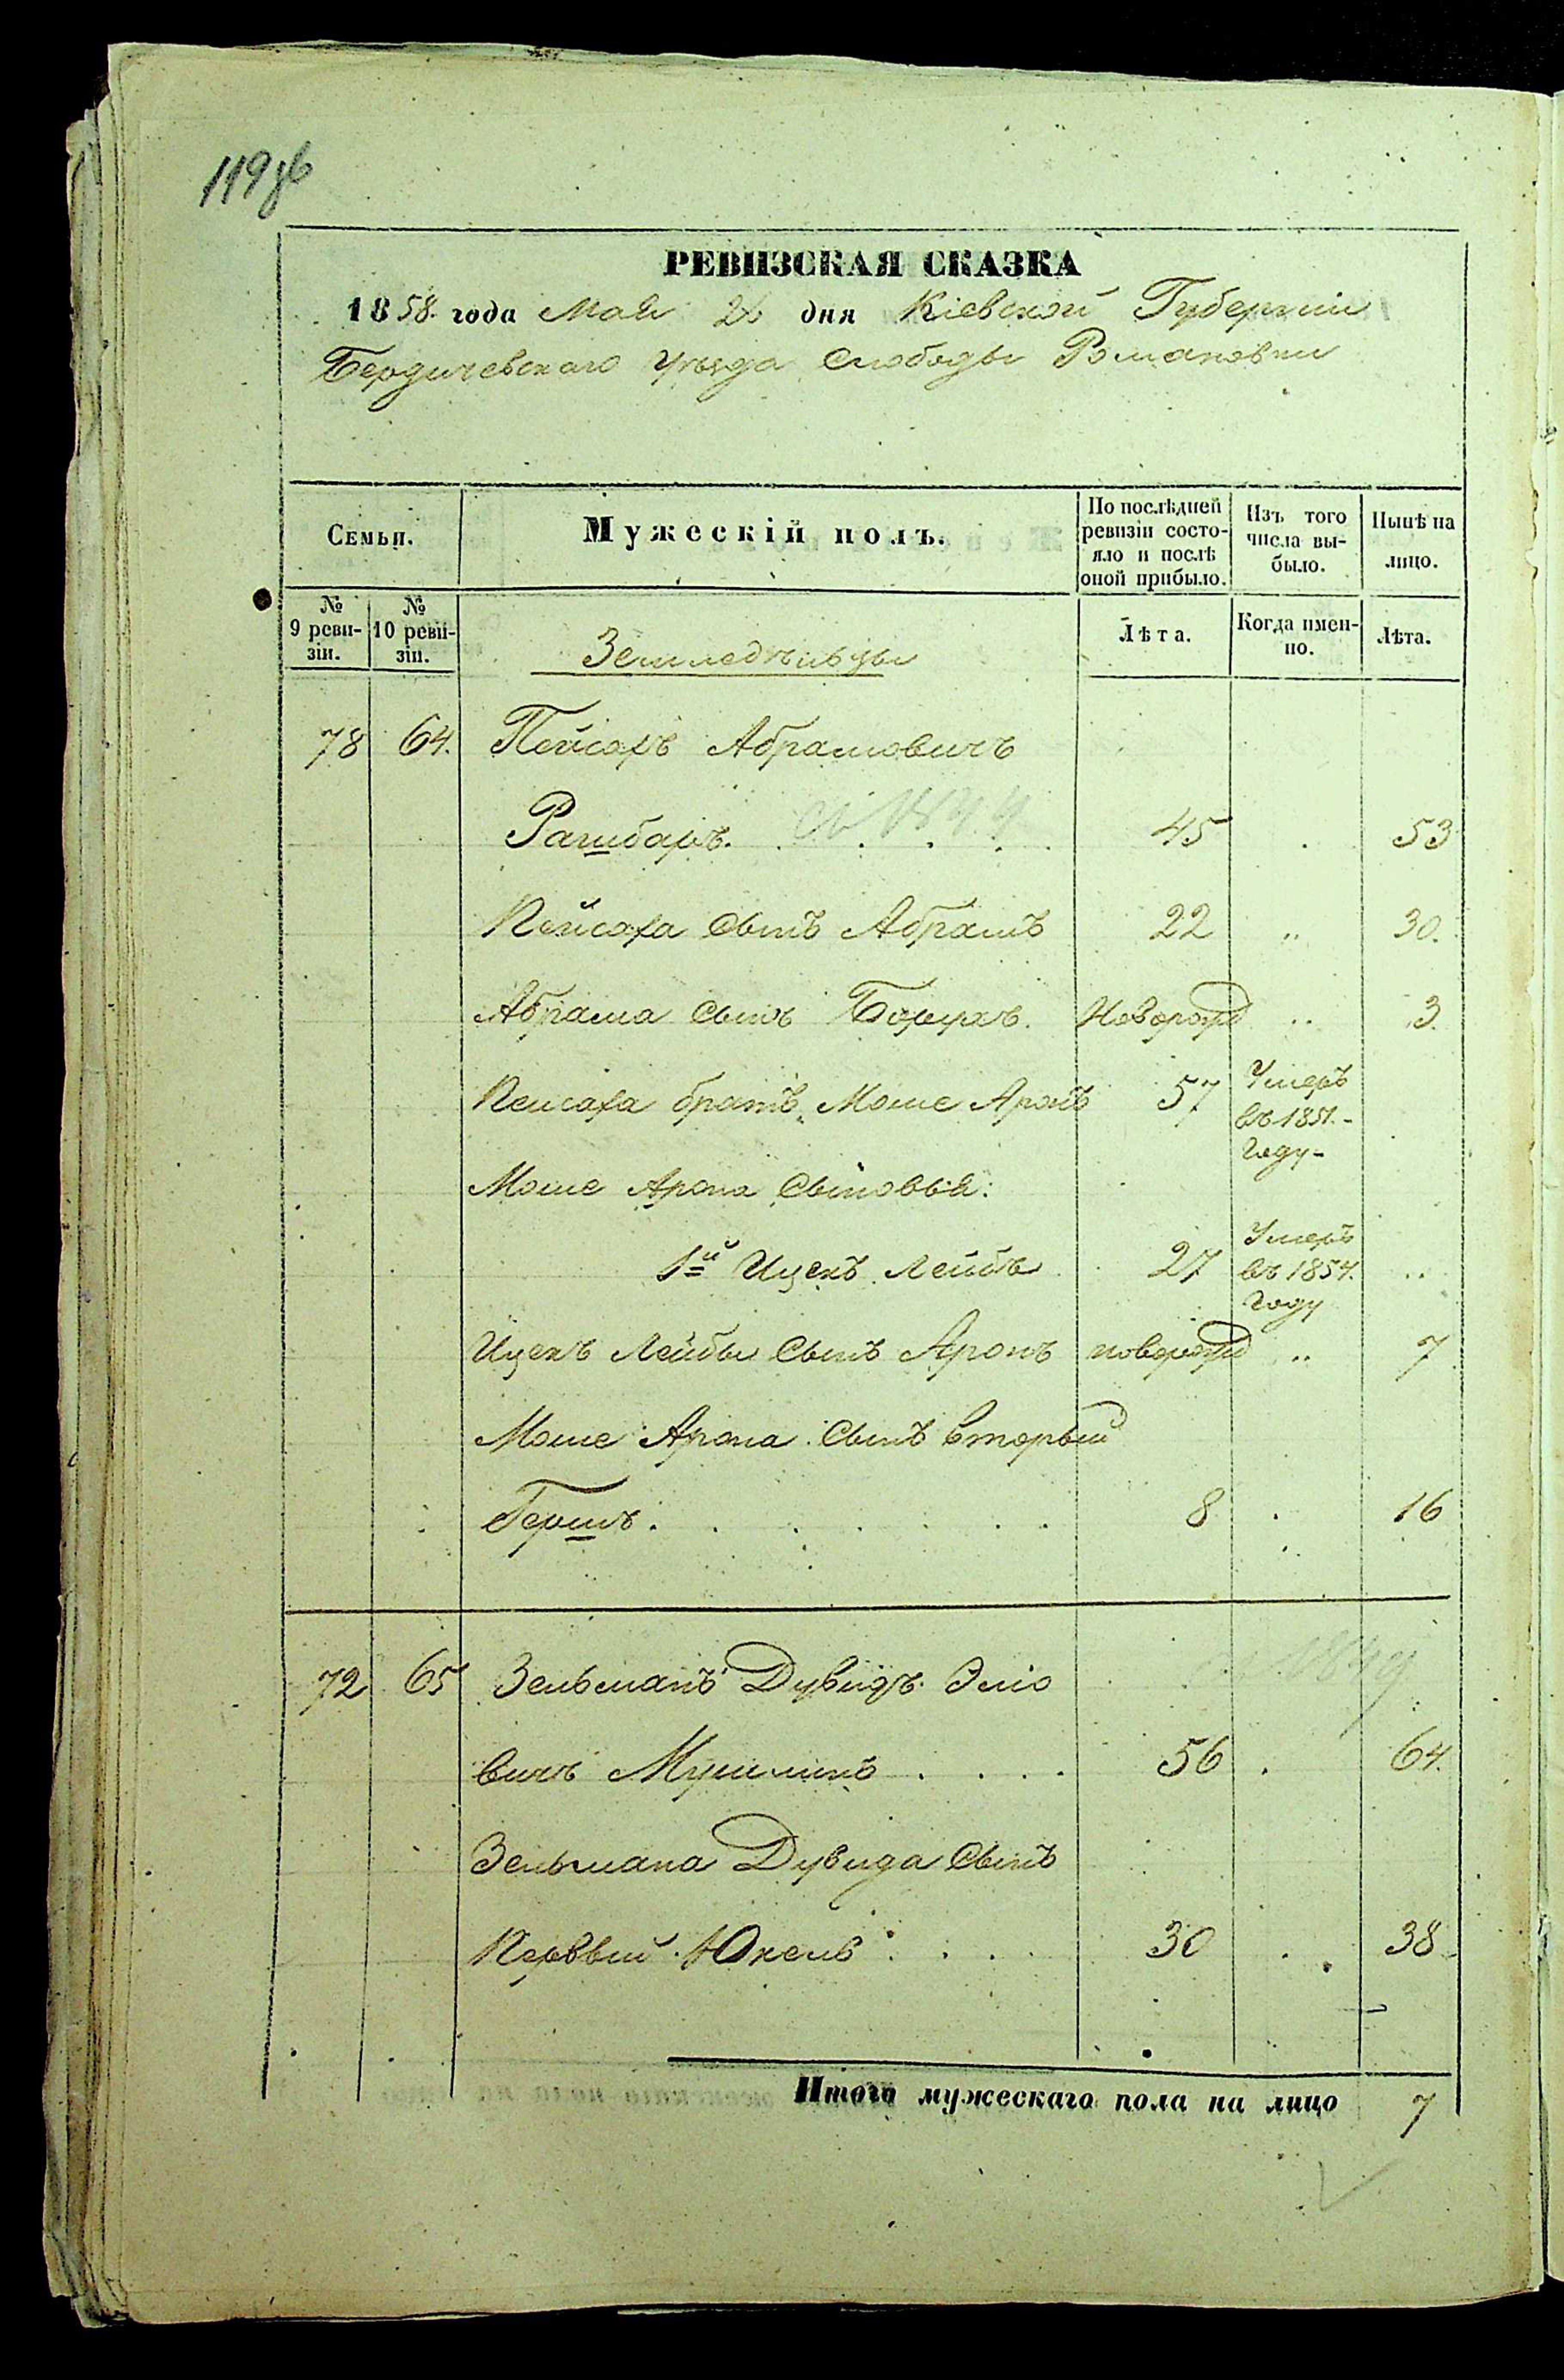 119об
РЕВИЗСКАЯ СКАЗКА
1858. года Мая 26 дня Кіевской Губерніи
Бердичевскаго Уѣзда Слободы Романовки
Семьи.
Мужескій полъ.
По послѣдней ревизіи состояло и послѣ оной прибыло.
Изъ того числа выбыло.
Нынѣ на лицо.
№ 9 ревизіи.
№ 10 ревизіи.
Земледѣльцы
Лѣта.
Когда именно.
Лѣта.
78 64. Пейсахъ Абрамовичъ
Рашбахъ. 45 53
Пейсаха сынъ Абрамъ 22 .. 30.
Абрама сынъ Борухъ. Новорожд .. 3.
Пейсаха братъ Моше Аронъ 57 Умеръ въ 1851.- Году-
Моше Арона Сыновья:
1й Ицекъ Лейбъ 27 Умеръ въ 1854. Году ..
Ицекъ Лейбы Сынъ Аронъ новорожд .. 7
Моше Арона Сынъ вторый
Гершъ. 8 16
72 65 Зельманъ Дувидъ Эліо
вичъ 56 64.
Зельмана Дувида Сынъ
Первый Юкель 30 38
Итого мужескаго пола на лицо 7